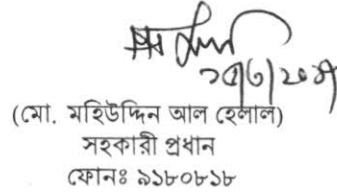 (মো. মহিউদ্দিন আল হেলাল)
সহকারী প্রধান
ফোনঃ ৯১৮০৮১৮